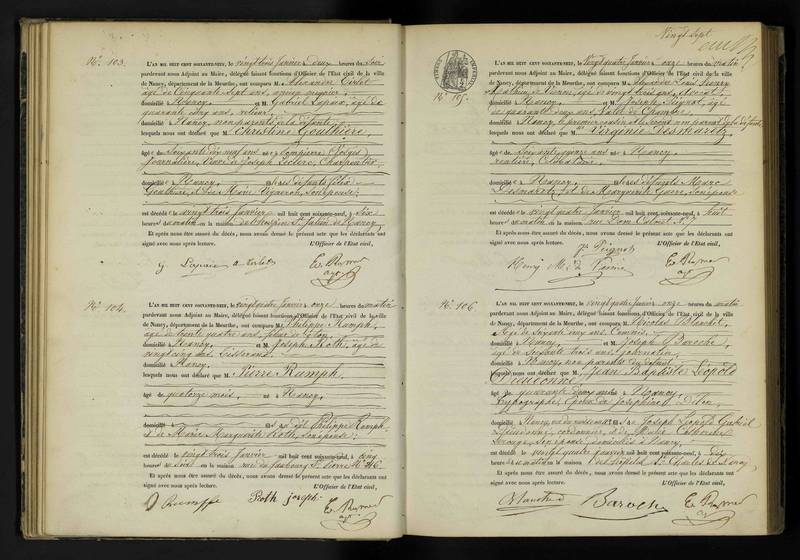 N° 103.
L'AN MIL HUIT CENT SOIXANTE-NEUF, le vingt trois Janvier deux heures du Soir
pardevant nous Adjoint au Maire, délégué faisant fonctions d'Officier de l'État civil de la ville
de Nancy, département de la Meurthe, ont comparu M. Alexandre
âgé de Cinquante sept ans,
domicilié à Nancy et M. Gabriel Lapaix, âgé de
quarante cinq ans, relieur,
domicilié à Nancy, non parents de la défunte,
lesquels nous ont déclaré que Christine Gouthière,
âgée de Soixante dix neuf ans née à Dompierre Vosges
Journalière, Veuve de Joseph Leclerc, Charpentier,
domiciliée à Nancy, des défunts Félix
Gouthière, et de Marie Vigneron, son épouse;
est décédée le vingt trois Janvier mil huit cent soixante-neuf, à Six
heures du matin en la maison de l'hospice St. Julien de Nancy,
Et après nous être assuré du décès, nous avons dressé le présent acte que les déclarants ont
signé avec nous après lecture. L'Officier de l'État civil,
g Lapaix
N° 104.
L'AN MIL HUIT CENT SOIXANTE-NEUF, le vingt quatre Janvier onze heures du matin
pardevant nous Adjoint au Maire, délégué faisant fonctions d'Officier de l'État civil de la ville
de Nancy, département de la Meurthe, ont comparu M. Philippe Rumph,
âgé de trente quatre ans, fileur de Coton,
domicilié à Nancy, et M. Joseph Roth, âgé de
vingt cinq ans, Tisserand,
domicilié à Nancy,
lesquels nous ont déclaré que Pierre Rumph,
âgé de quatorze mois, né à Nancy,
fils de Philippe Rumph,
& de Marie Marguerite Roth, son épouse;
est décédé le vingt trois Janvier mil huit cent soixante-neuf, à cinq
heures du soir en la maison rue du faubourg St. Pierre N°
Et après nous être assuré du décès, nous avons dressé le présent acte que les déclarants ont
signé avec nous après lecture. L'Officier de l'État civil,
Roth joseph
Vingt Sept
N° 105.
L'AN MIL HUIT CENT SOIXANTE-NEUF, le vingt quatre Janvier onze heures du matin
pardevant nous Adjoint au Maire, délégué faisant fonctions d'Officier de l'État civil de la ville
de Nancy, département de la Meurthe, ont comparu M. Alexandre Louis Henry
âgé de vingt trois ans, avocat
domicilié à Nancy et M. Joseph Peignot, âgé
de quarante deux ans, Valet de Chambre,
domicilié à Nancy, le premier
lesquels nous ont déclaré que Virginie Desmaretz
âgée de Soixante quinze ans née à Nancy
rentière, Célibataire,
domiciliée à Nancy des défunts Marc
Desmaretz, et de Marguerite son épouse
est décédée le vingt quatre Janvier mil huit cent soixante-neuf, à huit
heures du matin en la maison rue Dom Calmet N° 7
Et après nous être assuré du décès, nous avons dressé le présent acte que les déclarants ont
signé avec nous après lecture. L'Officier de l'État civil,
Peignot
Henry
N° 106
L'AN MIL HUIT CENT SOIXANTE-NEUF, le vingt quatre Janvier onze heures du matin
pardevant nous Adjoint au Maire, délégué faisant fonctions d'Officier de l'État civil de la ville
de Nancy, département de la Meurthe, ont comparu M. Nicolas
âgé de Soixante deux ans, Commis,
domicilié à Nancy, et M. Joseph Baroche,
âgé de Soixante trois ans, Journalier,
domicilié à Nancy, non parents du défunt,
lesquels nous ont déclaré que Jean Baptiste Léopold
Dieudonné,
âgé de quarante deux ans né à Nancy,
typographe, Époux de Joséphine
domicilié à Nancy, fils de Joseph Léopold Gabriel
Dieudonné, cordonnier, et de Marie Catherine
son épouse, domiciliés à Nancy,
est décédé le vingt quatre Janvier mil huit cent soixante-neuf, à cinq
heures du matin en la maison l'hôpital St. Charles de Nancy
Et après nous être assuré du décès, nous avons dressé le présent acte que les déclarants ont
signé avec nous après lecture. L'Officier de l'État civil,
Baroch